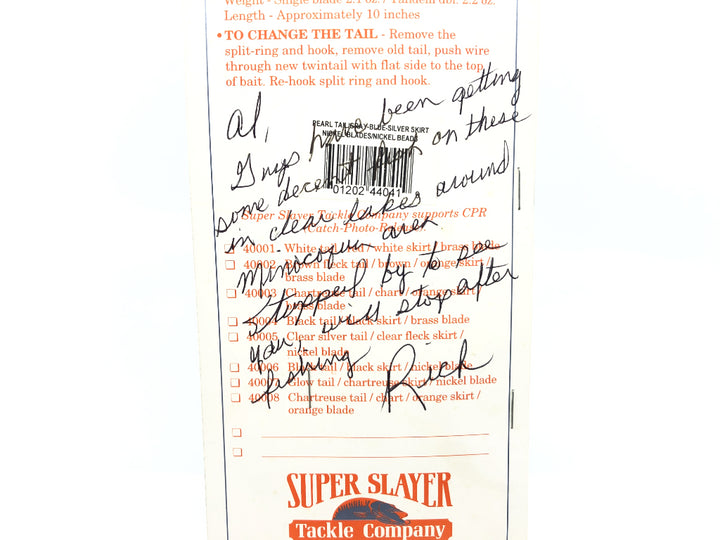 Weight - Single blade 2.1 oz. / Tandem dbl. 2.2 oz.
Length - Approximately 10 inches
• TO CHANGE THE TAIL - Remove the
split-ring and hook, remove old tail, push wire
through new twintail with flat side to the top
of bait. Re-hook split ring and hook.
Al,
Guys have been getting
some decent fish on these
in clear lakes around
Minocqua area
Stopped by to see
you, will stop after
fishing
Rich
PEARL TAIL/GRAY-BLUE-SILVER SKIRT
NICKEL BLADES/NICKEL BEADS
01202 44041
Super Slayer Tackle Company supports CPR
(Catch-Photo-Release).
40001 - White tail / red / white skirt / brass blade
40002 - Brown fleck tail / brown / orange skirt /
brass blade
40003 Chartreuse tail / chart / orange skirt /
brass blade
40004 Black tail / black skirt / brass blade
40005 Clear silver tail / clear fleck skirt /
nickel blade
40006 Black tail / black skirt / nickel blade
40007 Glow tail / chartreuse skirt / nickel blade
40008 Chartreuse tail / chart / orange skirt /
orange blade
SUPER SLAYER
Tackle Company